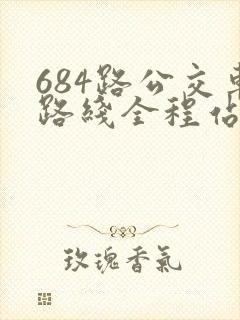 684路公交車
路綫全程站
玫瑰香氣